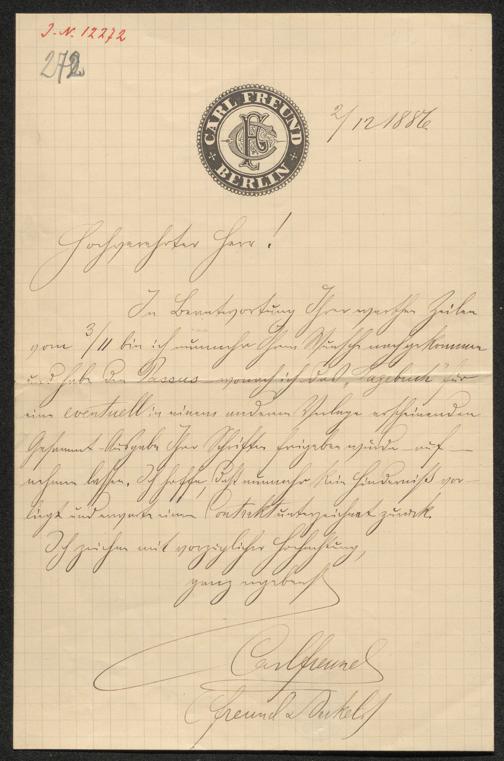 J.-N. 12272
272
CARL FREUND
BERLIN
2/12 1886
Hochverehrter Herr!
In Beantwortung Ihrer werthen Zeilen
vom 3/11 bin ich nunmehr Ihrem Wunsche nachgekommen
und habe den Passus – wonach ich das „Tagebuch" für
eine eventuell in einem anderen Verlage erscheinenden
Gesammt-Ausgabe Ihrer Schriften freigeben würde – auf-
nehmen lassen. Ich hoffe, daß nunmehr kein Hinderniß vor-
liegt und erwarte einen Contrakt unterzeichnet zurück.
Ich zeichne mit vorzüglicher Hochachtung,
ganz ergebenst
Carl Freund
Freund &